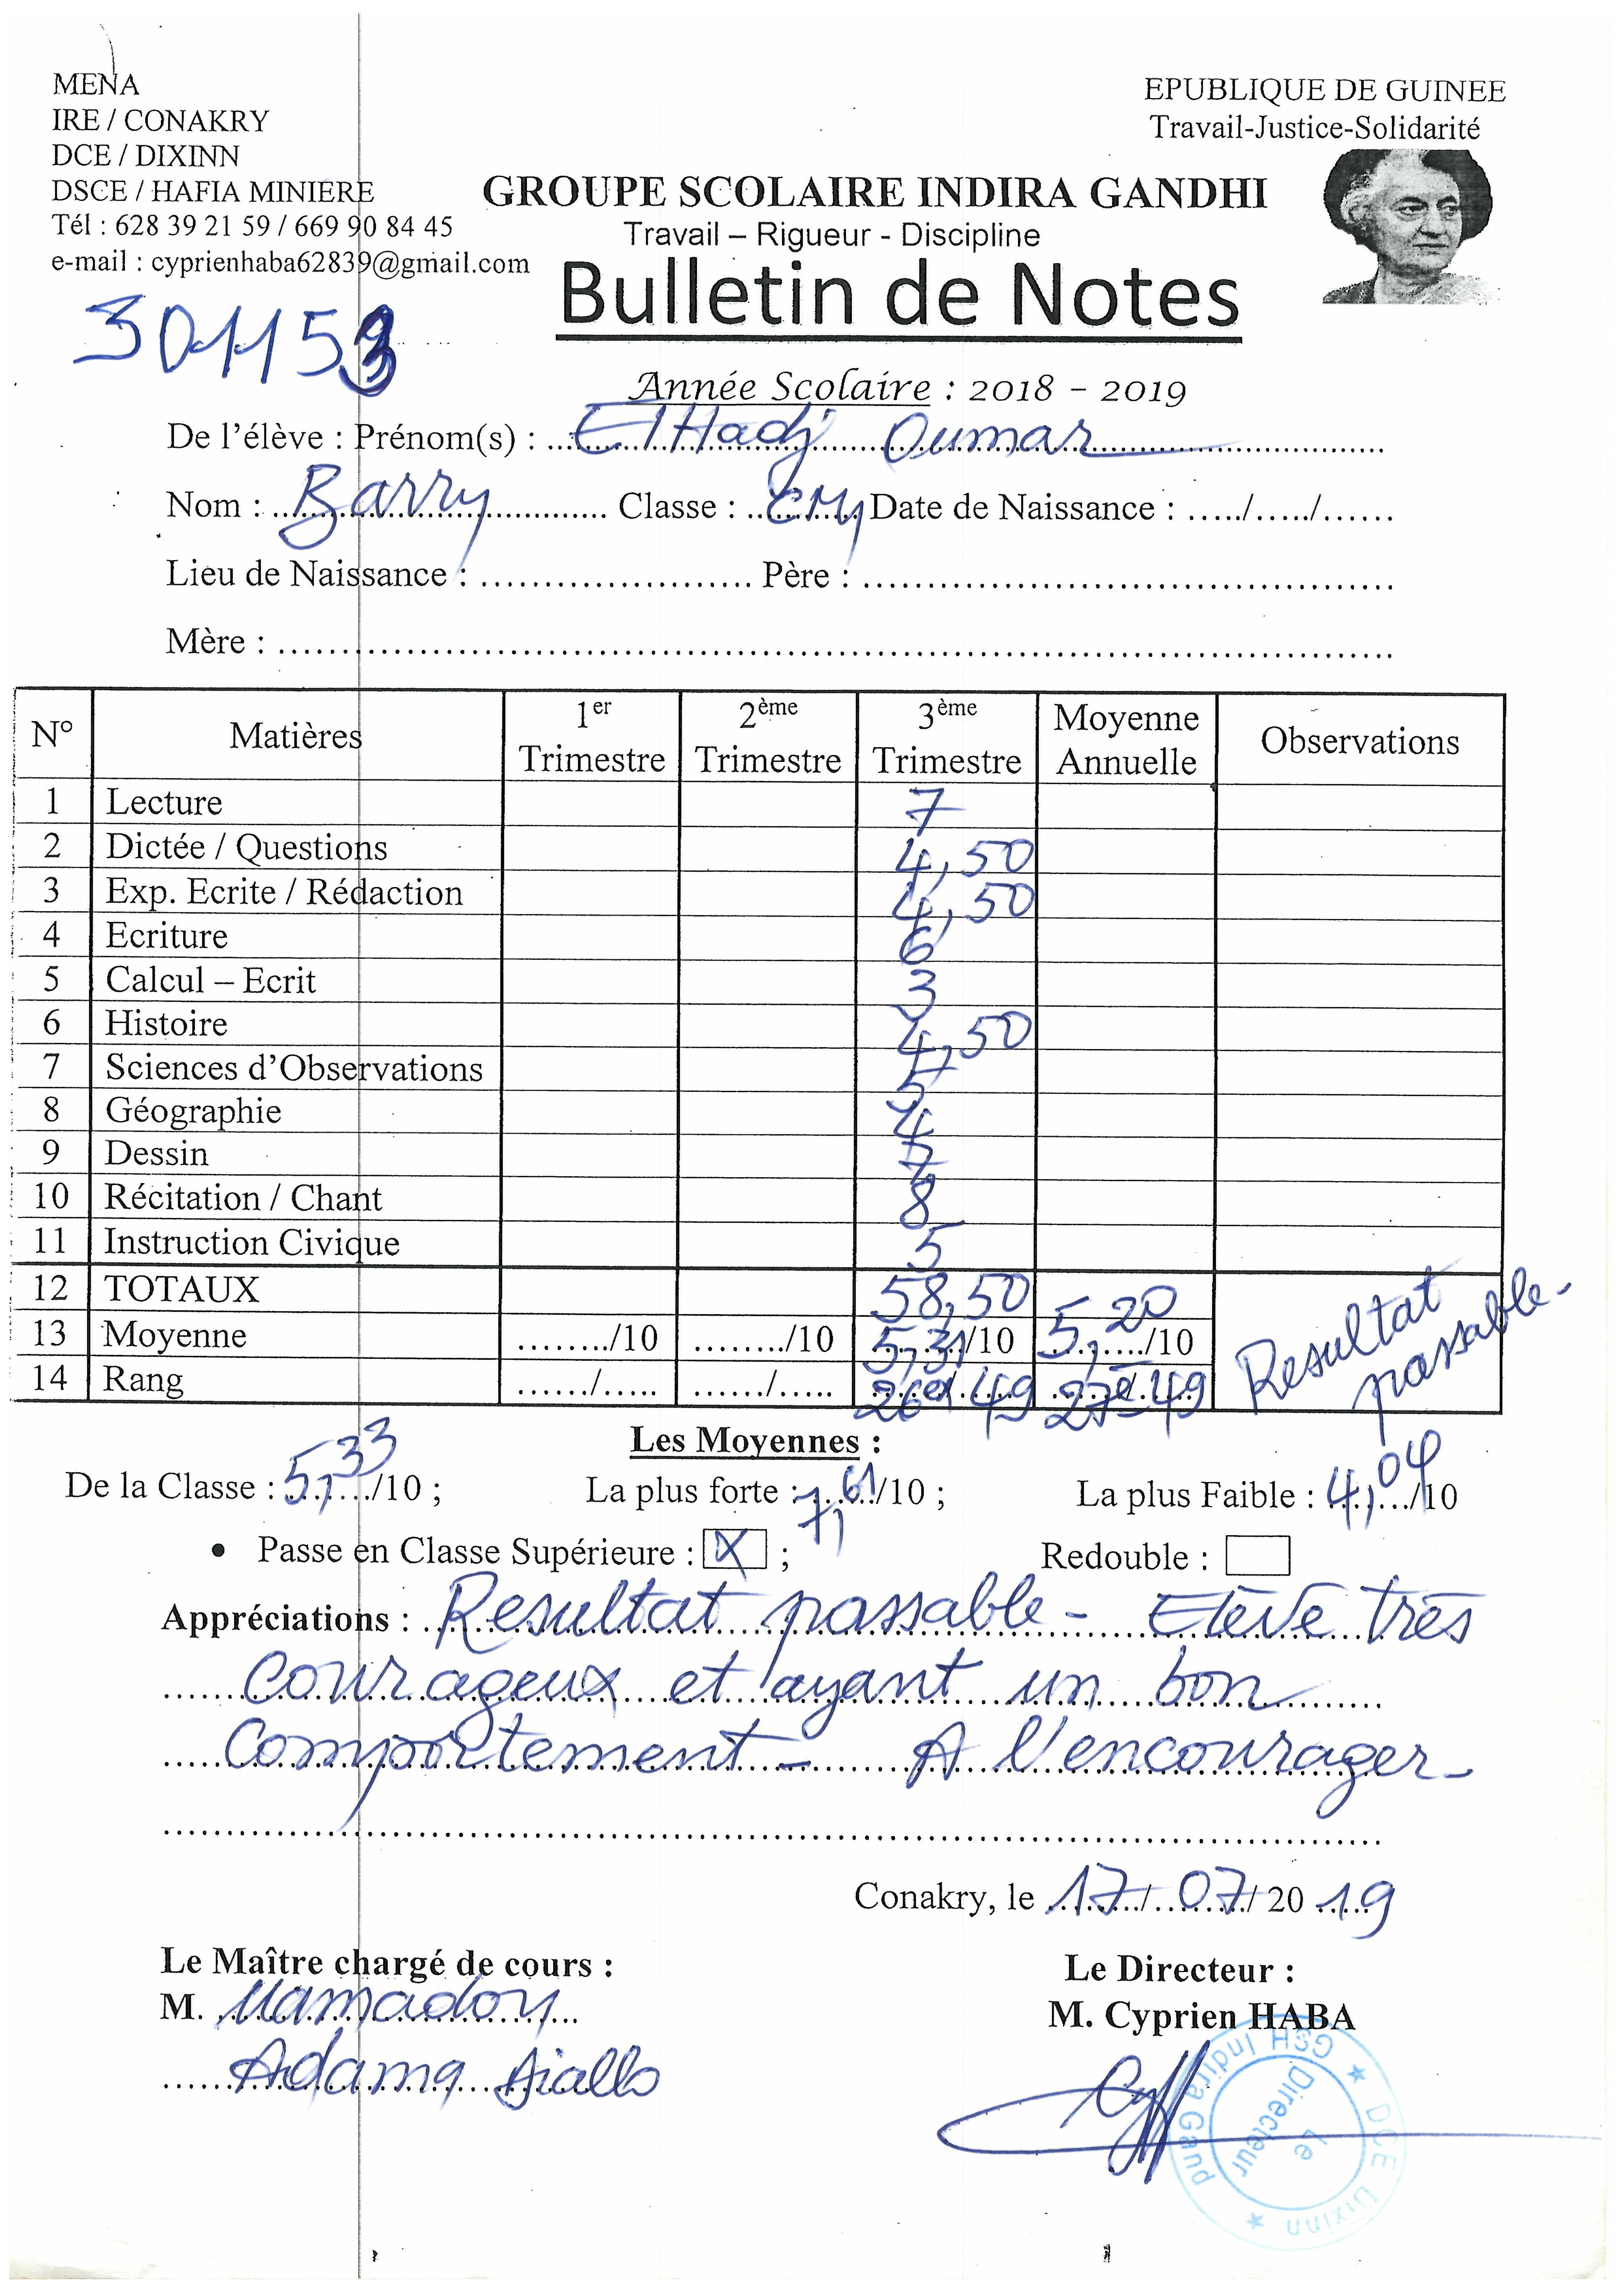 MENA
IRE / CONAKRY
DCE / DIXINN
DSCE / HAFIA MINIERE
Tél : 628 39 21 59 / 669 90 84 45
e-mail : cyprienhaba62839@gmail.com
EPUBLIQUE DE GUINEE
Travail-Justice-Solidarité
GROUPE SCOLAIRE INDIRA GANDHI
Travail – Rigueur - Discipline
Bulletin de Notes
301153
Année Scolaire : 2018 - 2019
De l'élève : Prénom(s) : El Hadj Oumar
Nom : Barry Classe : Date de Naissance : ...../...../......
Lieu de Naissance : ........................ Père : ........................
Mère : ........................
N° Matières 1er Trimestre 2ème Trimestre 3ème Trimestre Moyenne Annuelle Observations
1 Lecture 7
2 Dictée / Questions 4,50
3 Exp. Ecrite / Rédaction 4,50
4 Ecriture 6
5 Calcul – Ecrit 3
6 Histoire 4,50
7 Sciences d'Observations 5
8 Géographie 4
9 Dessin 7
10 Récitation / Chant 8
11 Instruction Civique 5
12 TOTAUX 58,50
13 Moyenne ......../10 ......../10 5,31/10 5,20/10 Resultat passable-
14 Rang ....../..... ....../..... 26e/49 27e/49
Les Moyennes :
De la Classe : 5,33/10 ; La plus forte : 7,61/10 ; La plus Faible : 4,04/10
• Passe en Classe Supérieure : X ; Redouble :
Appréciations : Resultat passable - Elève très
courageux et ayant un bon
comportement - A l'encourager-
Conakry, le 17/07/2019
Le Maître chargé de cours :
M. Mamadou
Adama Diallo
Le Directeur :
M. Cyprien HABA
GSH Indira Gand ★ DCE Dixinn ★
Le Directeur